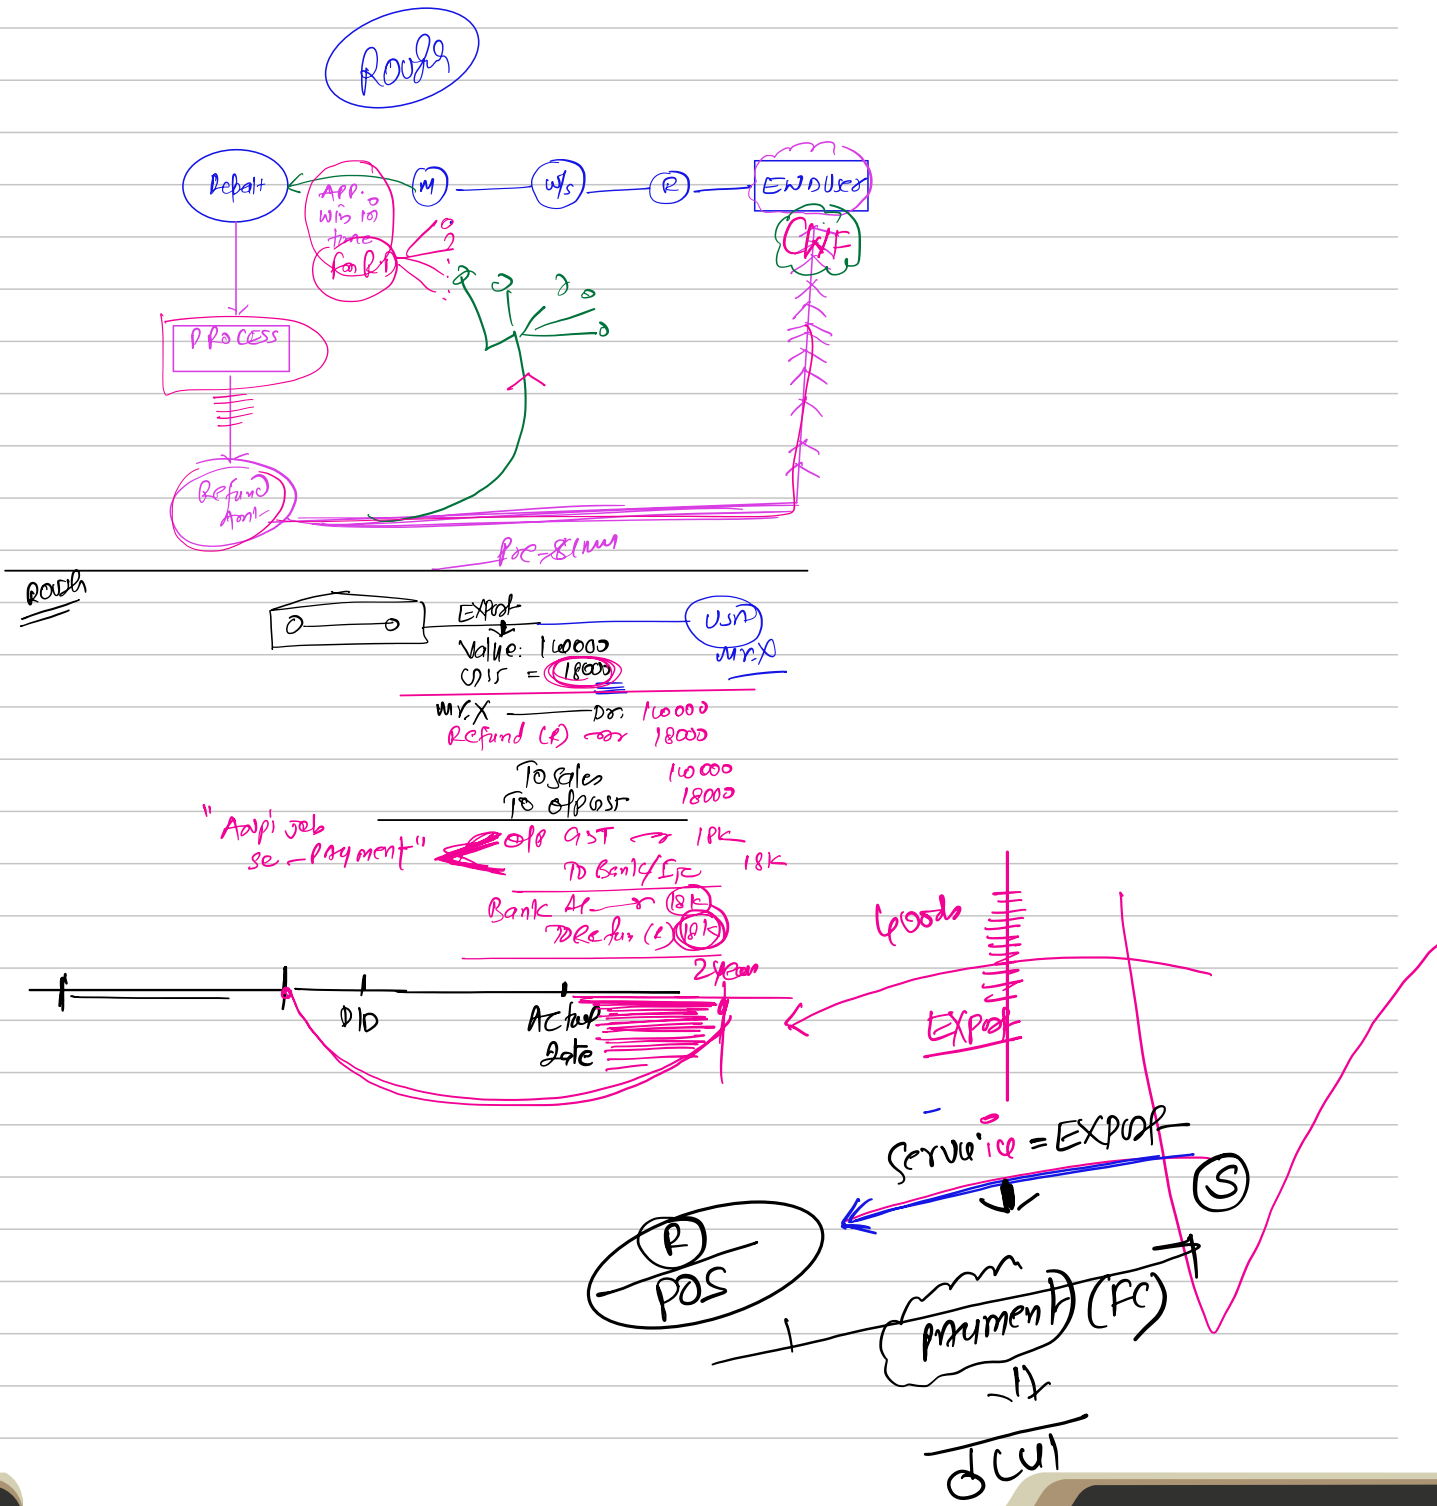 Rough
Depalt
APP.
win 10
time
For RI
M
W/s
R
ENDUser
CWF
PROCESS
Refund
Amt
Rough
EXPort
USA
Mr.X
Value: 100000
GST = 18000
Mr.X Dr. 100000
Refund (R) 18000
To Sales 100000
To o/p GST 18000
"Aapi Jeb
se - PAyment"
o/p GST 18K
To Bank/ITC 18K
Bank A/c 18K
To Refun (R) 18K
2 years
D/D
Actual
Date
Goods
EXPort
Service = EXPort
S
R
POS
PAyment (FC)